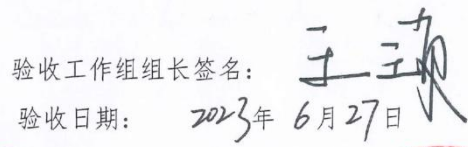 验收工作组组长签名：
验收日期： 2023年 6月27日